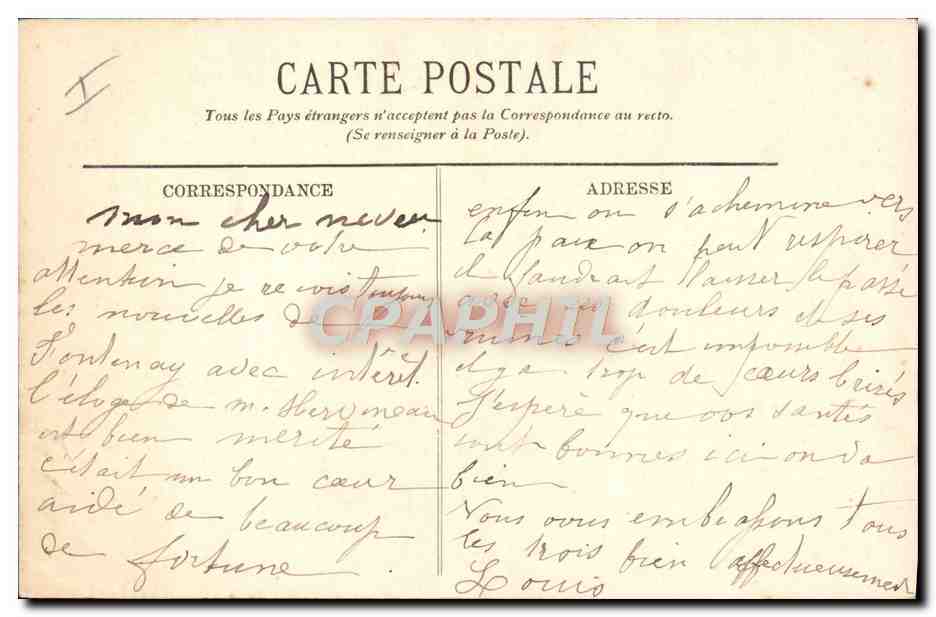 I
CARTE POSTALE
Tous les Pays étrangers n'acceptent pas la Correspondance au recto.
(Se renseigner à la Poste).
CORRESPONDANCE
mon cher neveu
merce de votre
attention je recois toujours
les nouvelles de
Fontenay avec intérêt.
l'éloge de m. Hervineau
est bien mérité
c'était un bon cœur
aidé de beaucoup
de fortune
ADRESSE
enfin on s'achemine vers
la paix on peut respirer
il faudrait laisser le passé
avec ses douleurs et ses
ruines c'est impossible
il y a trop de cœurs brisés
J'espère que vos santés
sont bonnes ici on va
bien
Nous vous embrassons tous
les trois bien affectueusement
Louis
CPAPHIL